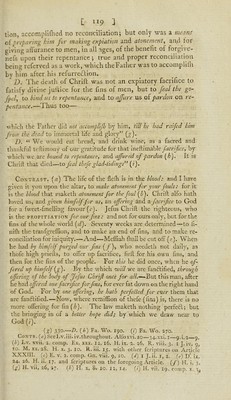 [ 119 ]
tion, accomplished no reconciliation; but only was a means
of preparing him for making expiation and atonement, and for
giving assurance to men, in all ages, of the benefit of forgive-
ness upon their repentance; true and proper reconciliation
being reserved as a work, which the Father was to accomplish
by him after his resurrection.
D. The death of Christ was not an expiatory sacrifice to
satisfy divine justice for the sins of men, but to seal the go-
spel, to bind us to repentance, and to assure us of pardon on re-
pentance.—Thus too—
which the Father did not accomplish by him, till he had raised him
from the dead to immortal life and glory” (g).
D. “ We would eat bread, and drink wine, as a sacred and
thankful testimony of our gratitude for that inestimable sacrifice, by
which we are bound to repentance, and assured of pardon (h). It is
Christ that died—to seal these glad tidings” (i).
Contrast, (a) The life of the flesh is in the blood: and I have
given it you upon the altar, to make atonement for your souls: for it
is the blood that maketh atonement for the soul (b). Christ also hath
loved us, and given himself for us, an offering and a sacrifice to God
for a sweet-smelling savour (c). Jesus Christ the righteous, who
is the propitiation for our sins: and not for ours only, but for the
sins of the whole world (d). Seventy weeks are determined—to fi-
nish the transgression, and to make an end of sins, and to make re-
conciliation for iniquity.—And—Messiah shall be cut off (e). When
he had by himself purged our sins (f), who needeth not daily, as
those high priests, to offer up sacrifice, first for his own sins, and
then for the sins of the people. For this he did once, when he of-
fered up himself (g). By the which will we are sanctified, through
offering of the body of Jesus Christ once for all.—But this man, after
he had offered one sacrifice for sins, for ever sat down on the right hand
of God. For by one offering, he hath perfected for ever them that
are sanctified.—Now, where remission of these (sins) is, there is no
more offering for sin (h). The law maketh nothing perfect; but
the bringing in of a better hope did; by which we draw near to
God (i).
(g) 370.—D. (h) Ea. Wo. 190. (i) Ea. Wo. 270.